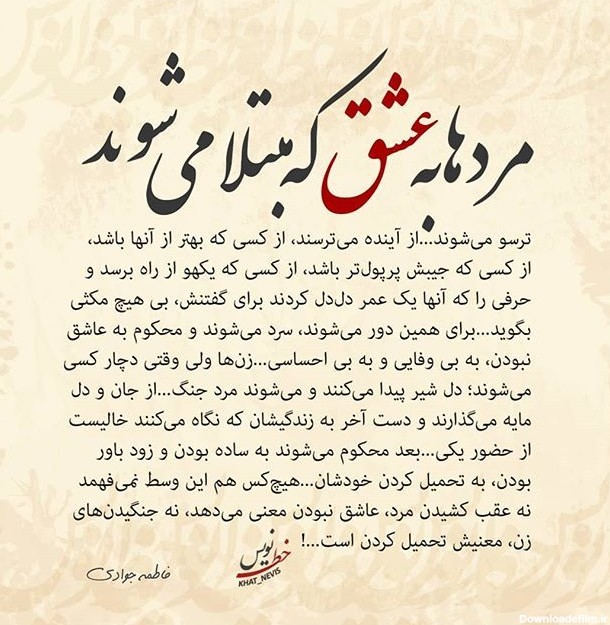 مردها به عشق که مبتلا می شوند
ترسو می‌شوند...از آینده می‌ترسند، از کسی که بهتر از آنها باشد،
از کسی که جیبش پرپول‌تر باشد، از کسی که یکهو از راه برسد و
حرفی را که آنها یک عمر دل‌دل کردند برای گفتنش، بی هیچ مکثی
بگوید...برای همین دور می‌شوند، سرد می‌شوند و محکوم به عاشق
نبودن، به بی وفایی و به بی احساسی...زن‌ها ولی وقتی دچار کسی
می‌شوند؛ دل شیر پیدا می‌کنند و می‌شوند مرد جنگ...از جان و دل
مایه می‌گذارند و دست آخر به زندگیشان که نگاه می‌کنند خالیست
از حضور یکی...بعد محکوم می‌شوند به ساده بودن و زود باور
بودن، به تحمیل کردن خودشان...هیچ‌کس هم این وسط نمی‌فهمد
نه عقب کشیدن مرد، عاشق نبودن معنی می‌دهد، نه جنگیدن‌های
زن، معنیش تحمیل کردن است...!
خط نویس
KHAT_NEVIS
فاطمه جوادی
Downloadefilm.ir